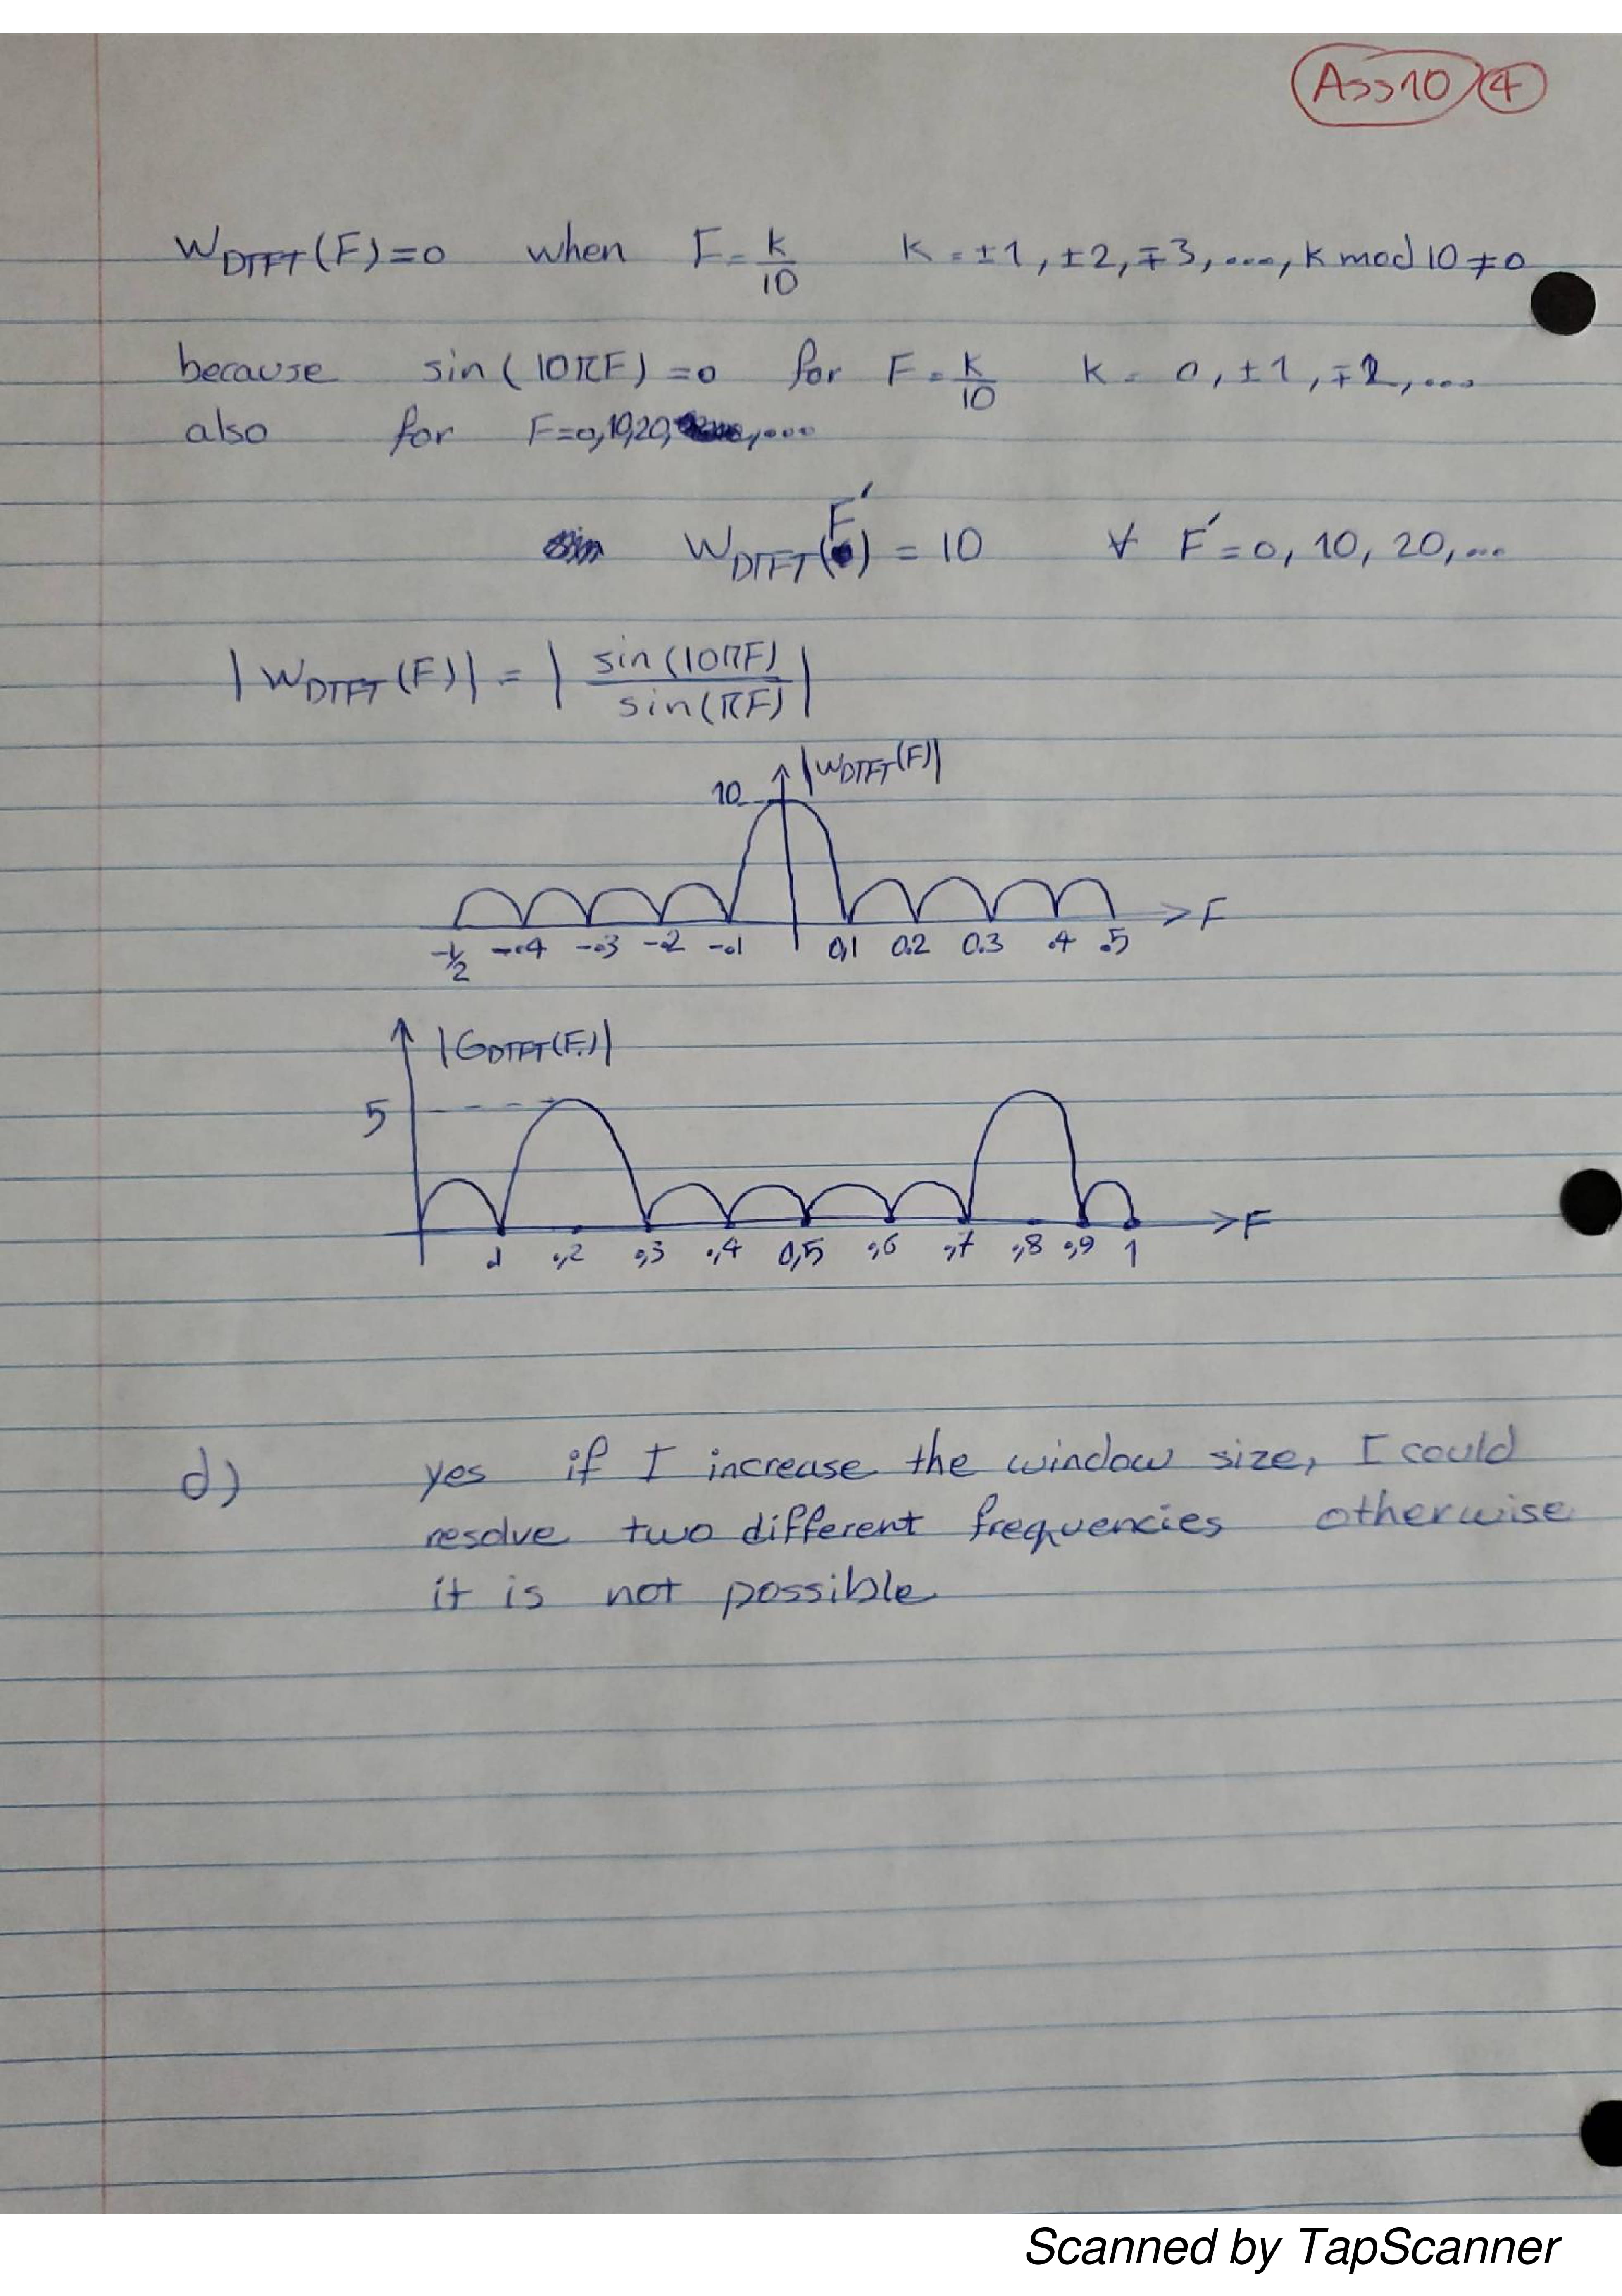 Ass10 4
W_DTFT(F)=0 when F=k/10 k=±1,±2,∓3,...,k mod 10≠0
because sin(10πF)=0 for F=k/10 k=0,±1,∓2,...
also for F=0,10,20,...
W_DTFT(F′)=10 ∀ F′=0,10,20,...
|W_DTFT(F)|=|sin(10πF)/sin(πF)|
|W_DTFT(F)|
10
F
-1/2 -.4 -.3 -.2 -.1 0,1 0.2 0.3 .4 .5
|G_DTFT(F)|
5
F
.1 .,2 .,3 .,4 0,5 .,6 .,7 .,8 .,9 1
d) yes if I increase the window size, I could
resolve two different frequencies otherwise
it is not possible
Scanned by TapScanner